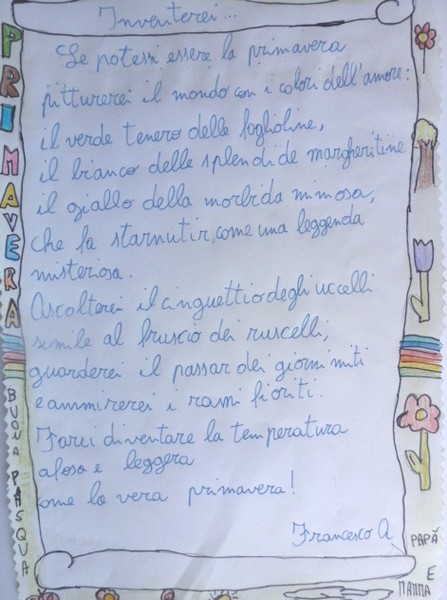 Inventerei...
Se potessi essere la primavera
pitturerei il mondo con i colori dell'amore:
il verde tenero delle foglioline,
il bianco delle splendide margheritine
il giallo della morbida mimosa,
che fa starnutir, come una leggenda
misteriosa.
Ascolterei il cinguettio degli uccelli
simile al fruscio dei ruscelli,
guarderei il passar dei giorni miti
e ammirerei i rami fioriti.
Farei diventare la temperatura
afosa e leggera
come la vera primavera!
Francesco A
PRIMAVERA
BUONA PASQUA
PAPÀ
E
MAMMA